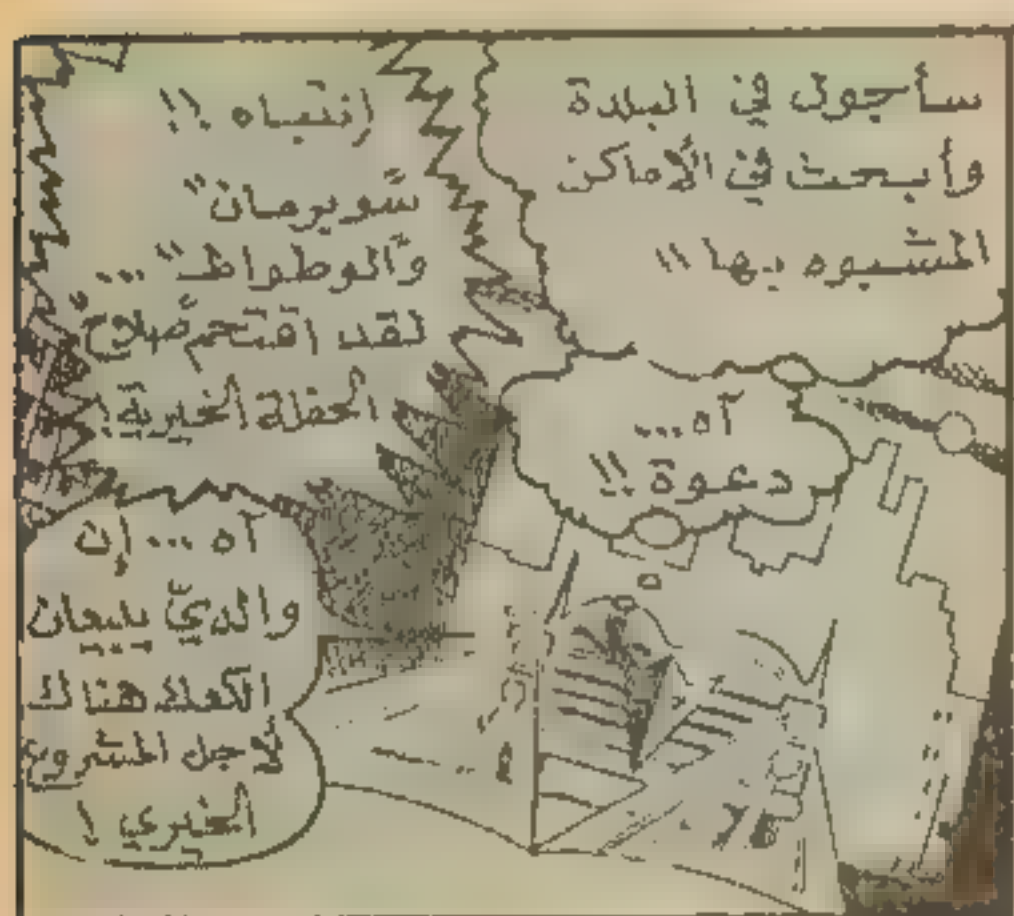 سأجول في البلدة
وأبحث في الأماكن
المشبوه بها !!
آه ...
دعوة !!
إنتباه !!
"سوبرمان"
و"الوطواط" ...
لقد اقتحم "صلاح"
الحفلة الخيرية !
آه ... إن
والديّ يبيعان
الكعك هناك
لأجل المشروع
الخيري !